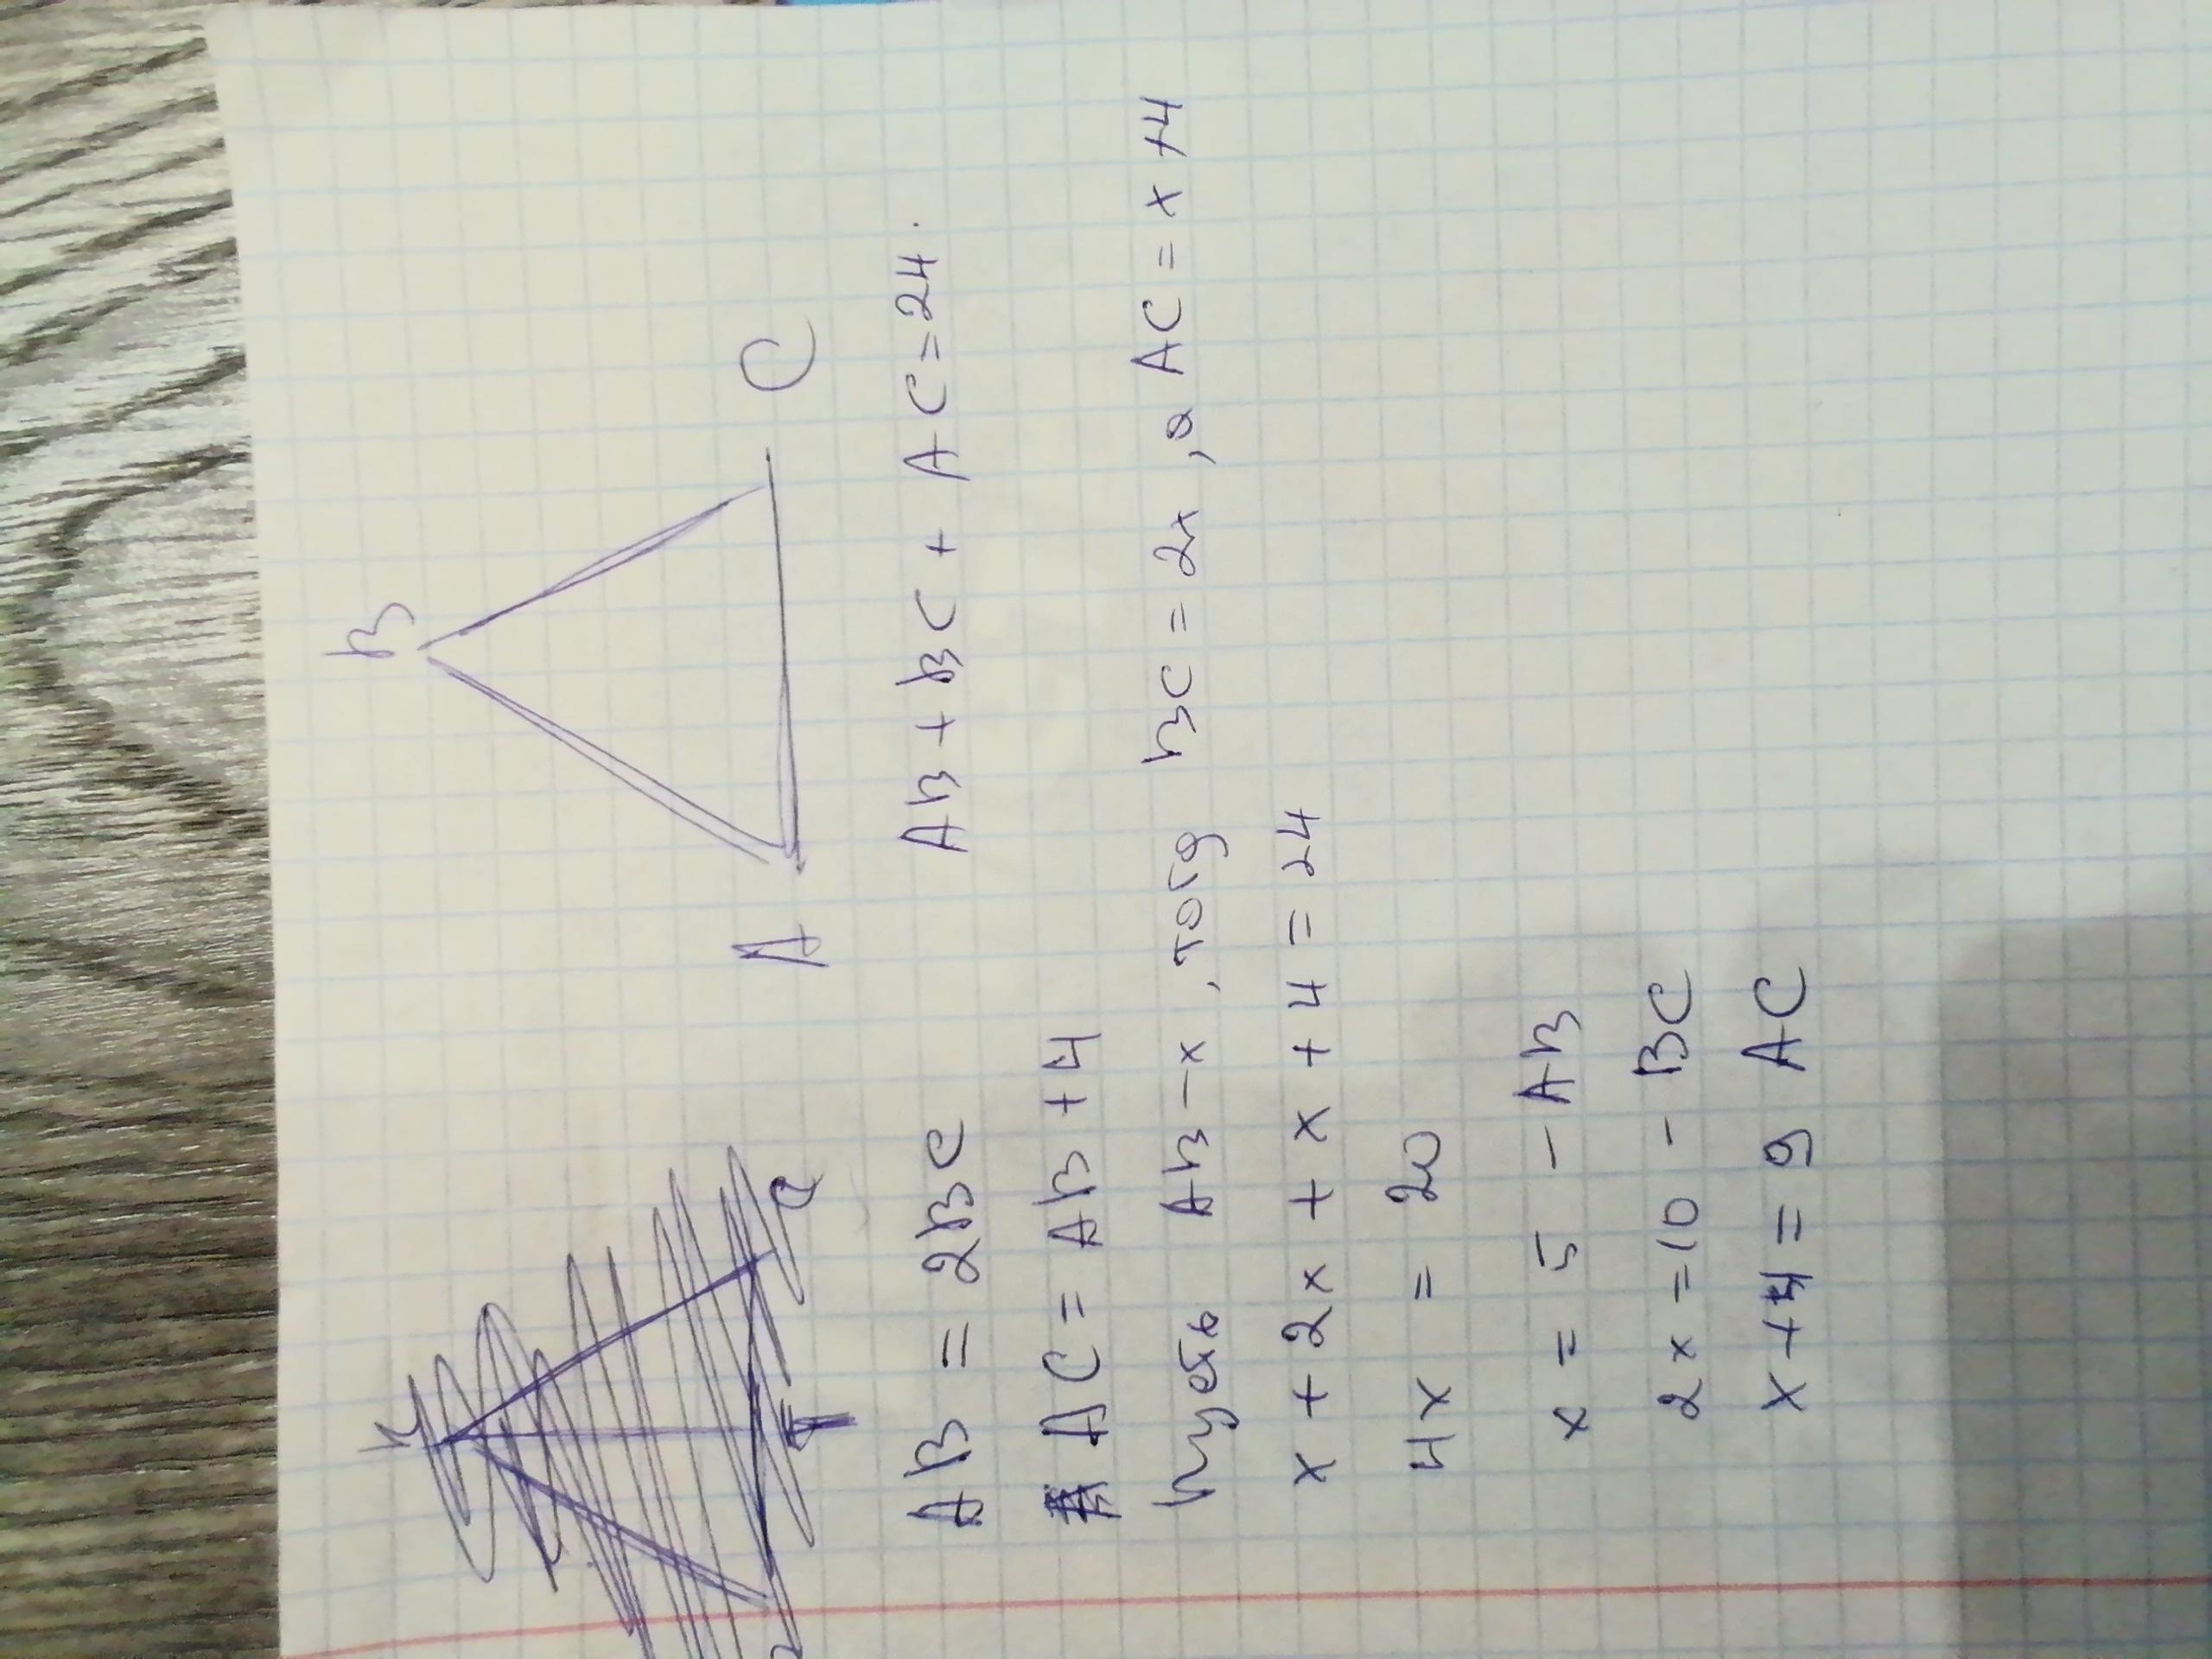 B
A C
AB = 2BC AB + BC + AC = 24.
AC = AB + 4
пусть AB – x, тогд BC = 2x, а AC = x + 4
x + 2x + x + 4 = 24
4x = 20
x = 5 – AB
2x = 10 – BC
x + 4 = 9 AC